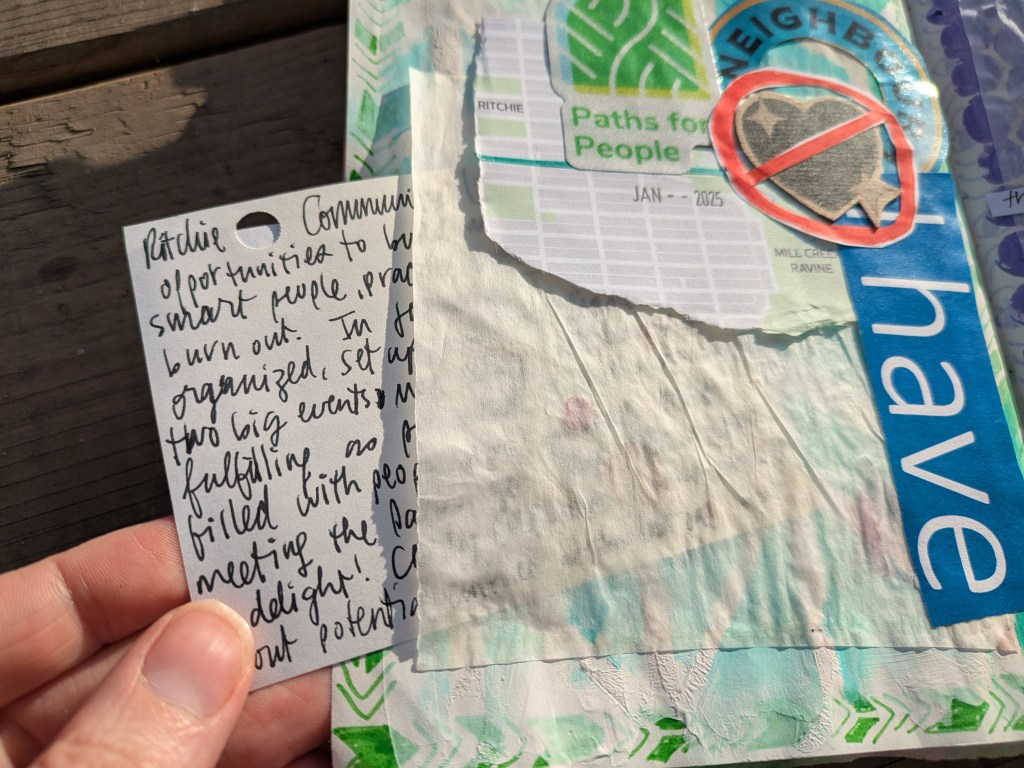 Ritchie Communi
opportunities to bu
smart people, prac
burn out. In
organized, set up
two big events,
fulfilling as
filled with peop
meeting the pa
delight!
out potentia
RITCHIE
Paths for
People
JAN - - 2025
MILL CREEK
RAVINE
NEIGHBOUR
I have